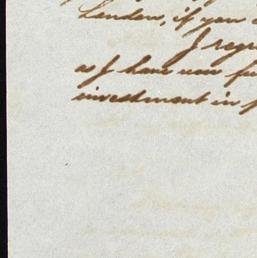 London, if you
I regr
as I have now fu
investment in f